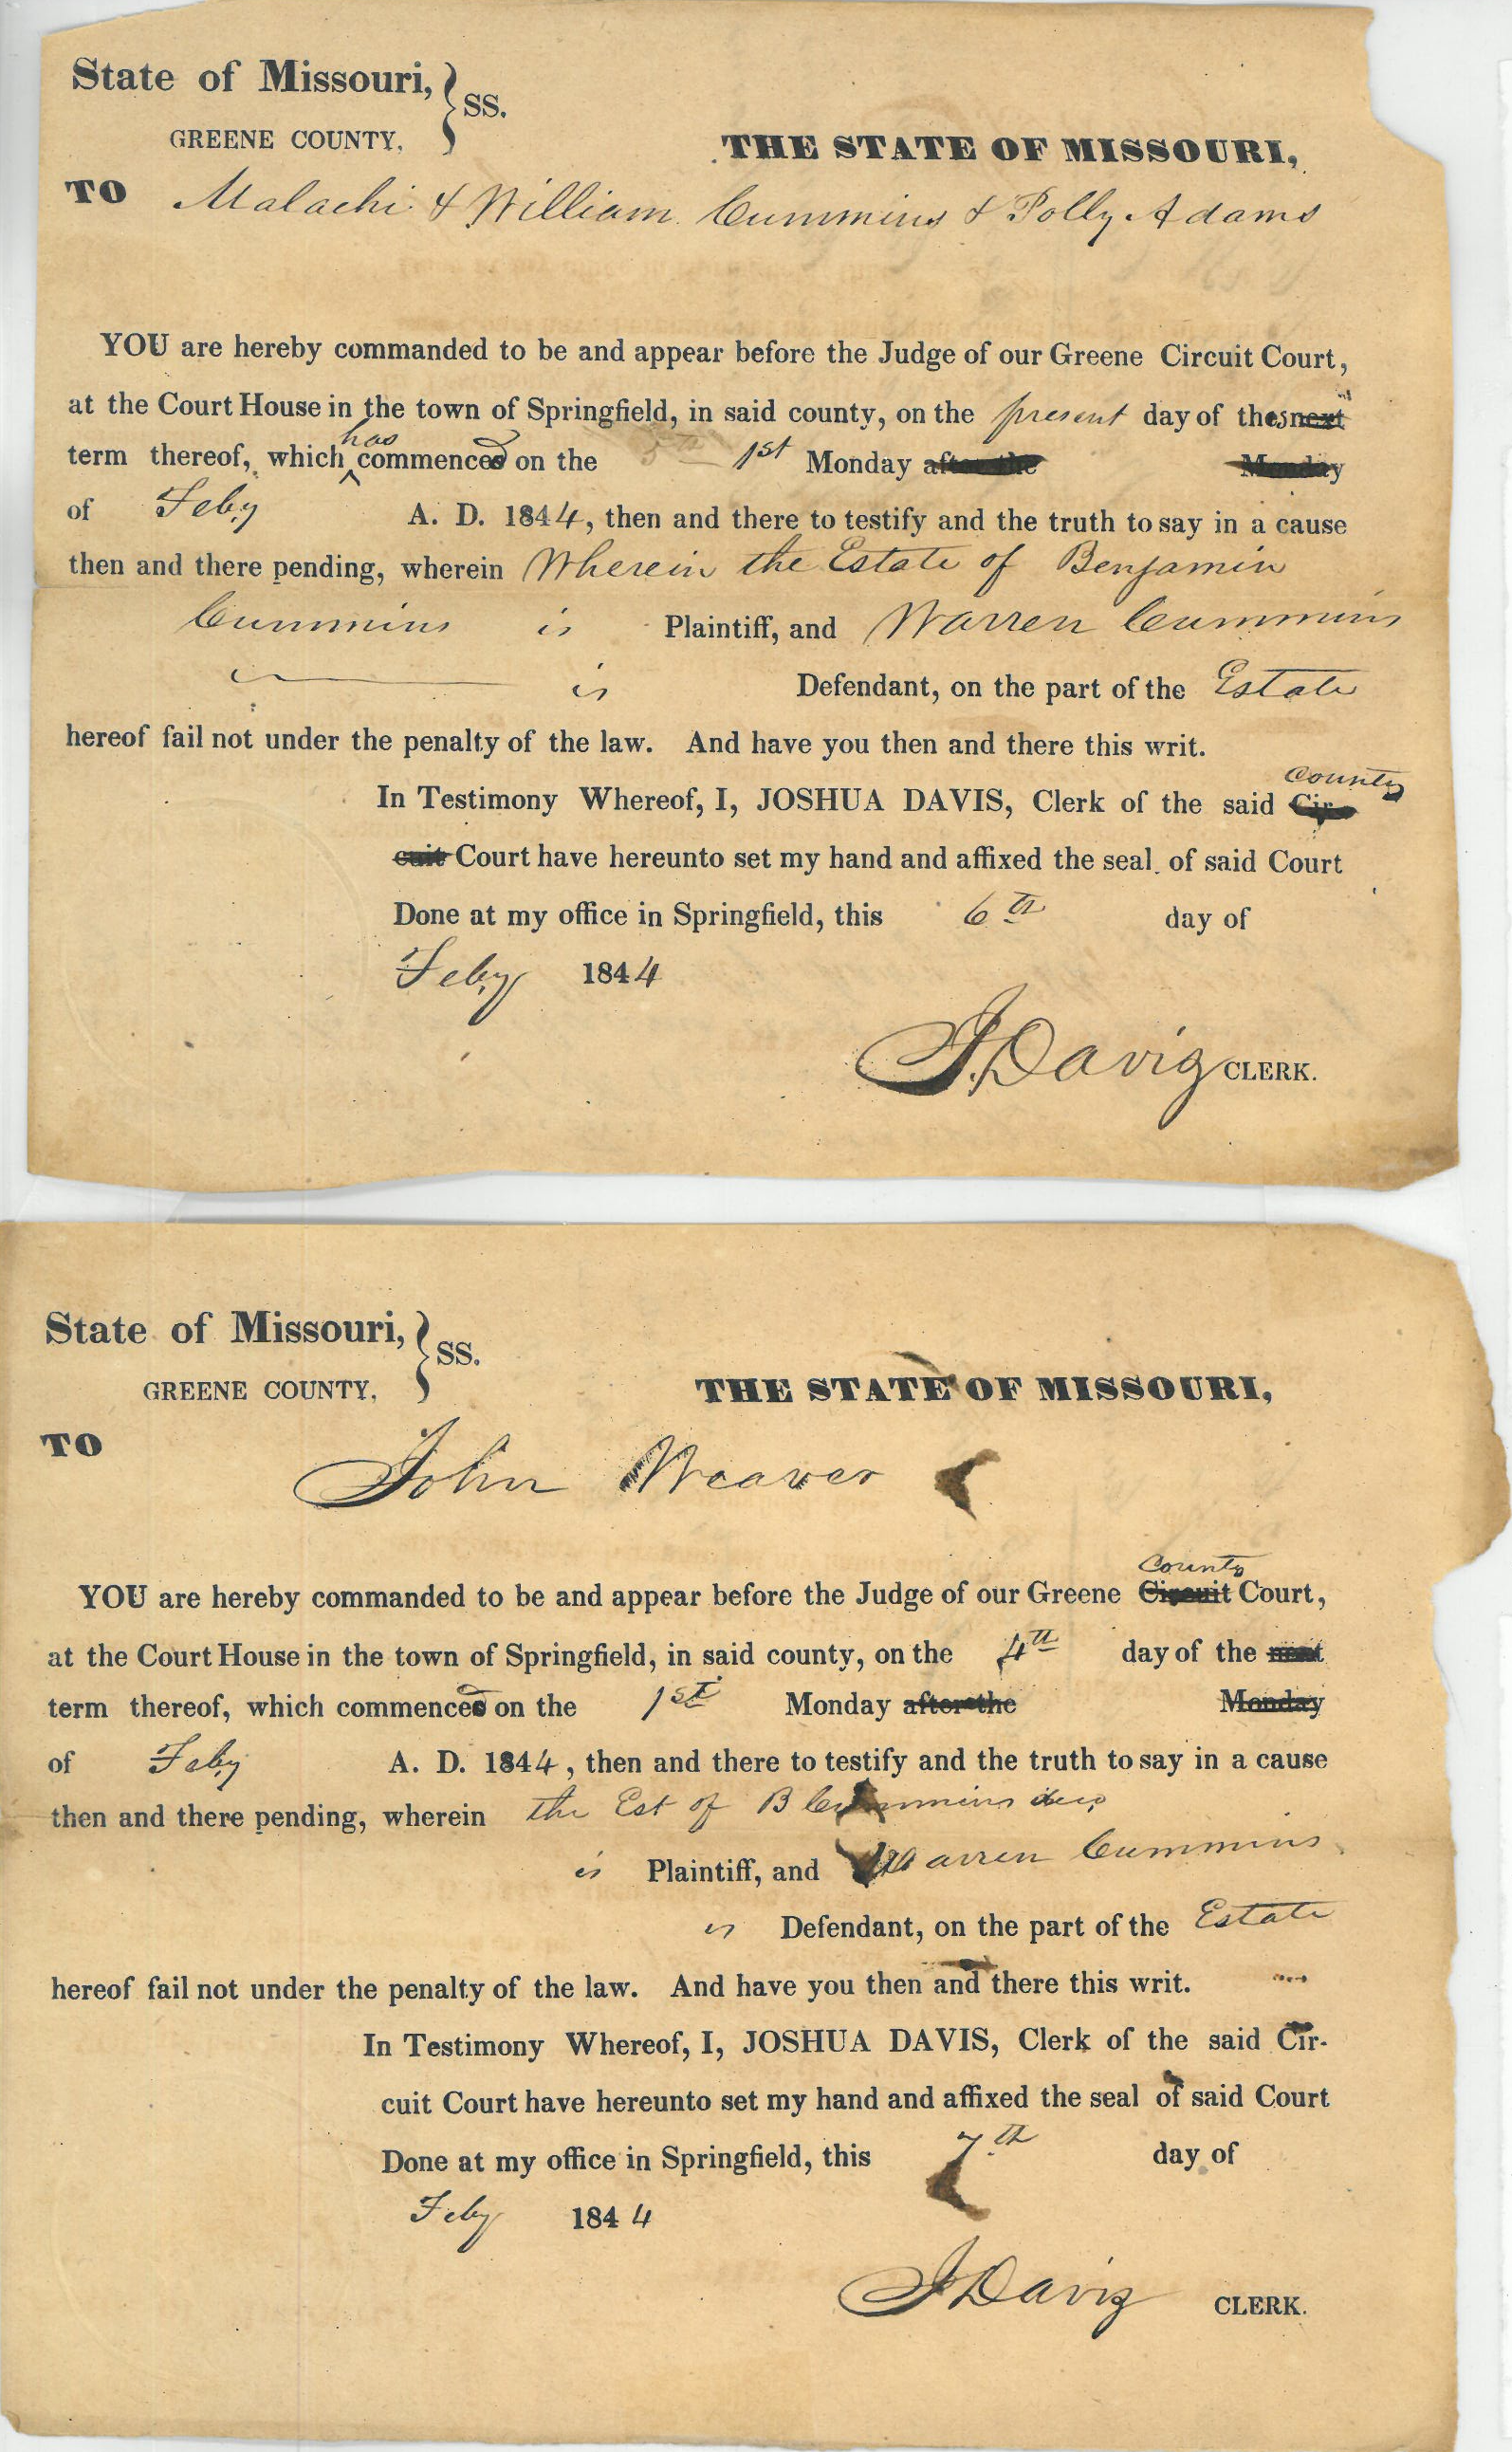 State of Missouri, } SS.
GREENE COUNTY,
THE STATE OF MISSOURI,
TO Malachi & William Cummins & Polly Adams
YOU are hereby commanded to be and appear before the Judge of our Greene Circuit Court,
at the Court House in the town of Springfield, in said county, on the present day of thes next
term thereof, which has commenced on the 5th 1st Monday after the Monday
of Feby A. D. 1844, then and there to testify and the truth to say in a cause
then and there pending, wherein Wherein the Estate of Benjamin
Cummins is Plaintiff, and Warren Cummins
is Defendant, on the part of the Estate
hereof fail not under the penalty of the law. And have you then and there this writ.
In Testimony Whereof, I, JOSHUA DAVIS, Clerk of the said Cir- County
cuit Court have hereunto set my hand and affixed the seal of said Court
Done at my office in Springfield, this 6th day of
Feby 1844
J. Davis CLERK.
State of Missouri, } SS.
GREENE COUNTY,
THE STATE OF MISSOURI,
TO
John Weaver
YOU are hereby commanded to be and appear before the Judge of our Greene Circuit County Court,
at the Court House in the town of Springfield, in said county, on the 4th day of the next
term thereof, which commenced on the 1st Monday after the Monday
of Feby A. D. 1844, then and there to testify and the truth to say in a cause
then and there pending, wherein the Est of B Cummins
is Plaintiff, and Warren Cummins
is Defendant, on the part of the Estate
hereof fail not under the penalty of the law. And have you then and there this writ.
In Testimony Whereof, I, JOSHUA DAVIS, Clerk of the said Cir-
cuit Court have hereunto set my hand and affixed the seal of said Court
Done at my office in Springfield, this 7th day of
Feby 1844
J Davis CLERK.